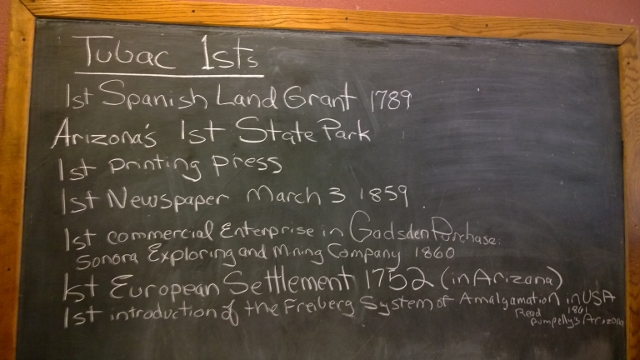 Tubac 1sts
1st Spanish Land Grant 1789
Arizona's 1st State Park
1st printing press
1st Newspaper March 3 1859
1st commercial Enterprise in Gadsden Purchase:
Sonora Exploring and Mining Company 1860
1st European Settlement 1752 (in Arizona)
1st introduction of the Freiberg System of Amalgamation in USA
1861
Read
Pumpelly's Arizona